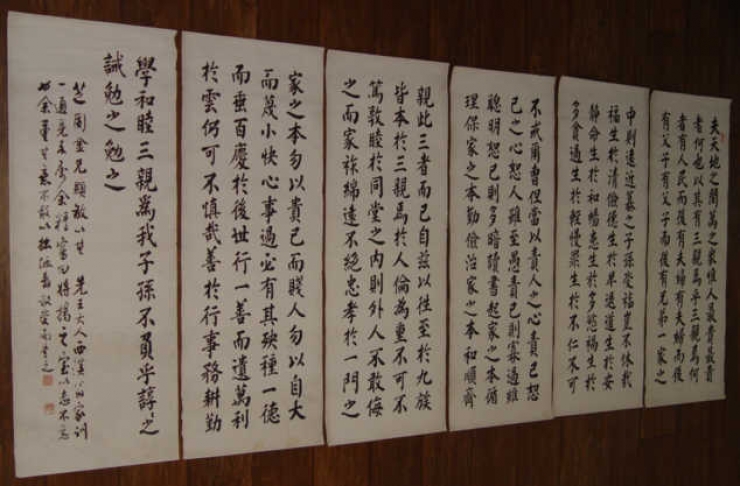 夫天地之間萬之衆惟人最貴最貴
者何也以其有三親焉乎三親爲何
者有人民而後有夫婦有夫婦而後
有父子有父子而後有兄弟一家之
中則遠近慕之子孫受福豈不休哉
福生於清儉德生於卑退道生於安
靜命生於和暢患生於多慾禍生於
多貪過生於輕慢罪生於不仁不可
不戒爾曹但當以責人之心責己恕
己之心恕人雖至愚責己則寡過雖
聰明恕己則多暗讀書起家之本循
理保家之本勤儉治家之本和順齊
親此三者而已自茲以往至於九族
皆本於三親焉於人倫爲重不可不
篤敦睦於同堂之內則外人不敢侮
之而家祚綿遠不絶忠孝於一門之
家之本勿以貴己而賤人勿以自大
而蔑小快心事過必有其殃種一德
而垂百慶於後世行一善而遺萬利
於雲仍可不慎哉善於行事務耕勤
學和睦三親爲我子孫不負乎諄之
誠勉之勉之